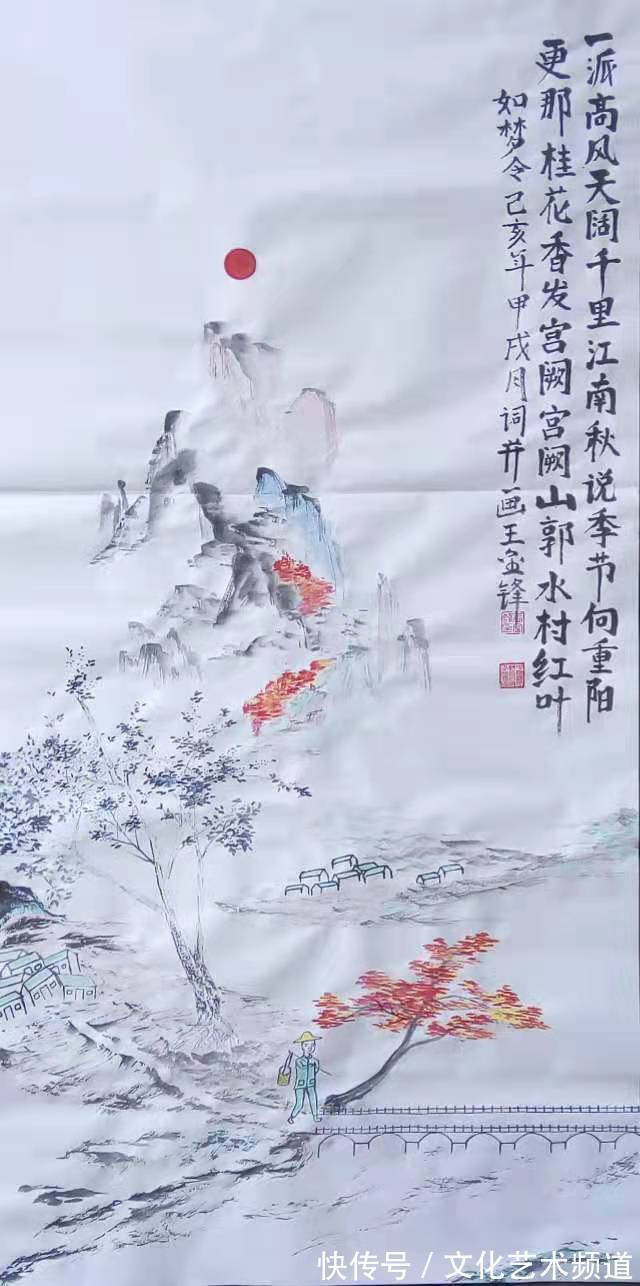 一派高风天阔千里江南秋说季节何重阳
更那桂花香发宫阙宫阙山郭水村红叶
如梦令己亥年甲戌月词并画王金锋
快传号／文化艺术频道